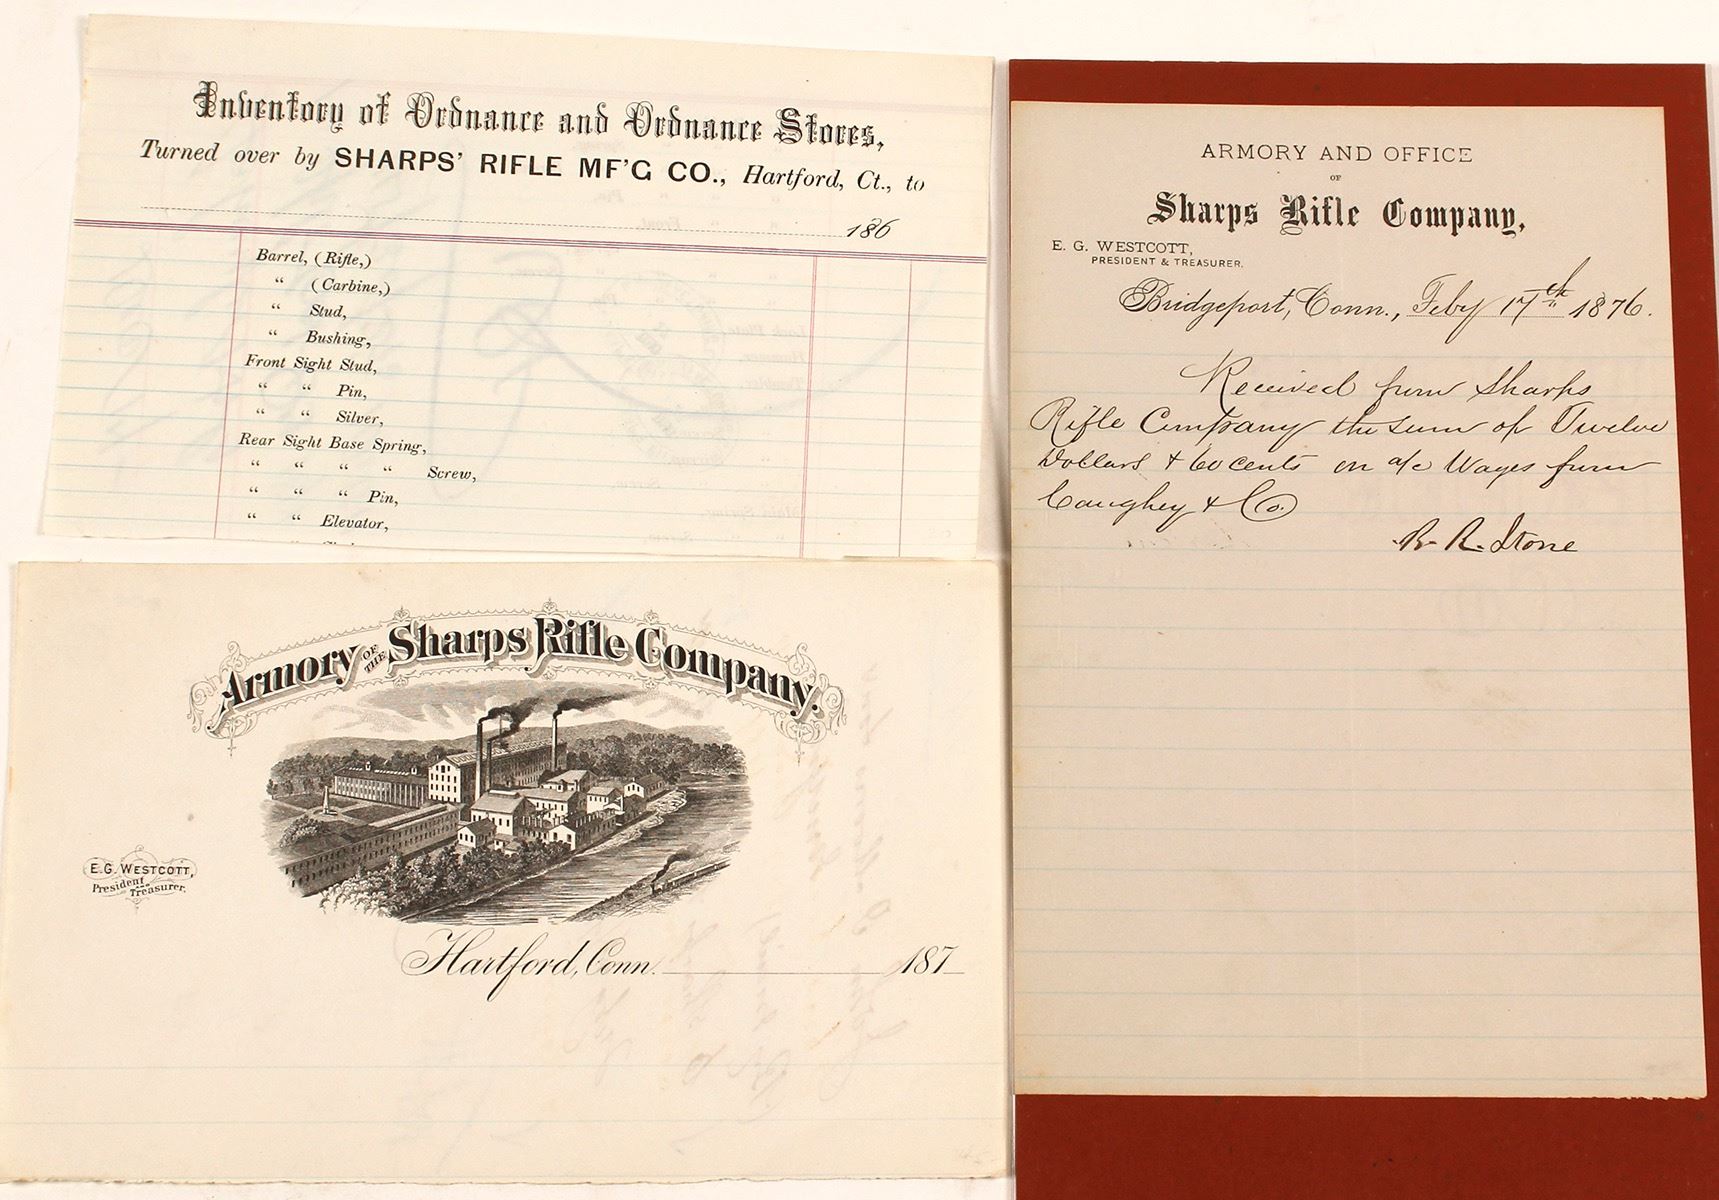 Inventory of Ordnance and Ordnance Stores,
Turned over by SHARPS' RIFLE MF'G CO., Hartford, Ct., to
186
Barrel, (Rifle,)
“ (Carbine,)
“ Stud,
“ Bushing,
Front Sight Stud,
“ “ Pin,
“ “ Silver,
Rear Sight Base Spring,
“ “ “ “ Screw,
“ “ “ Pin,
“ “ Elevator,
Armory OF THE Sharps Rifle Company.
E. G. WESTCOTT,
President and Treasurer.
Hartford, Conn. 187
ARMORY AND OFFICE
OF
Sharps Rifle Company,
E. G. WESTCOTT,
PRESIDENT & TREASURER.
Bridgeport, Conn., Feby 17th 1876.
Received from Sharps
Rifle Company the sum of Twelve
Dollars & 60 cents on a/c Wages from
Caughey & Co.
R. Stone